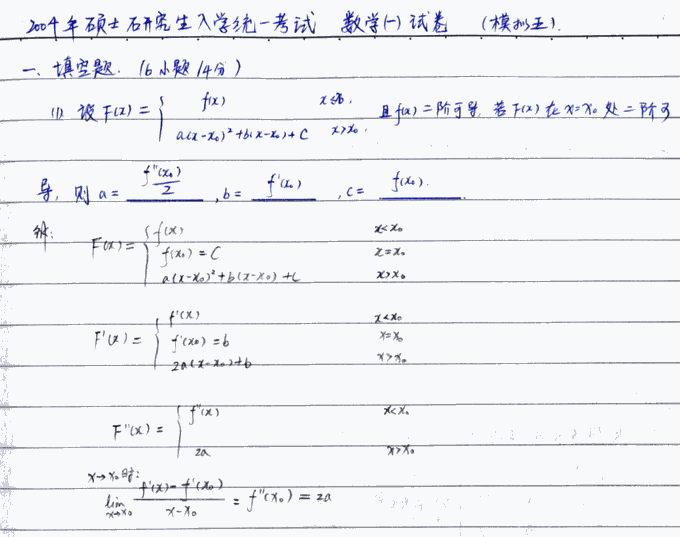 2004年硕士研究生入学统一考试 数学(一)试卷 (模拟五).
一、填空题. (6小题/4分)
(1) 设 F(x) = { f(x) x≤x₀,
a(x-x₀)²+b(x-x₀)+C x>x₀, 且f(x)二阶可导, 若F(x)在x=x₀处二阶可
导, 则 a= f''(x₀)/2 , b= f'(x₀) , c= f(x₀).
解:
F(x) = { f(x) x<x₀
f(x₀) = C x=x₀
a(x-x₀)²+b(x-x₀)+C x>x₀
F'(x) = { f'(x) x<x₀
f'(x₀) = b x=x₀
2a(x-x₀)+b x>x₀
F''(x) = { f''(x) x<x₀
2a x>x₀
x→x₀时:
lim x→x₀ (f'(x)-f'(x₀))/(x-x₀) = f''(x₀) = 2a